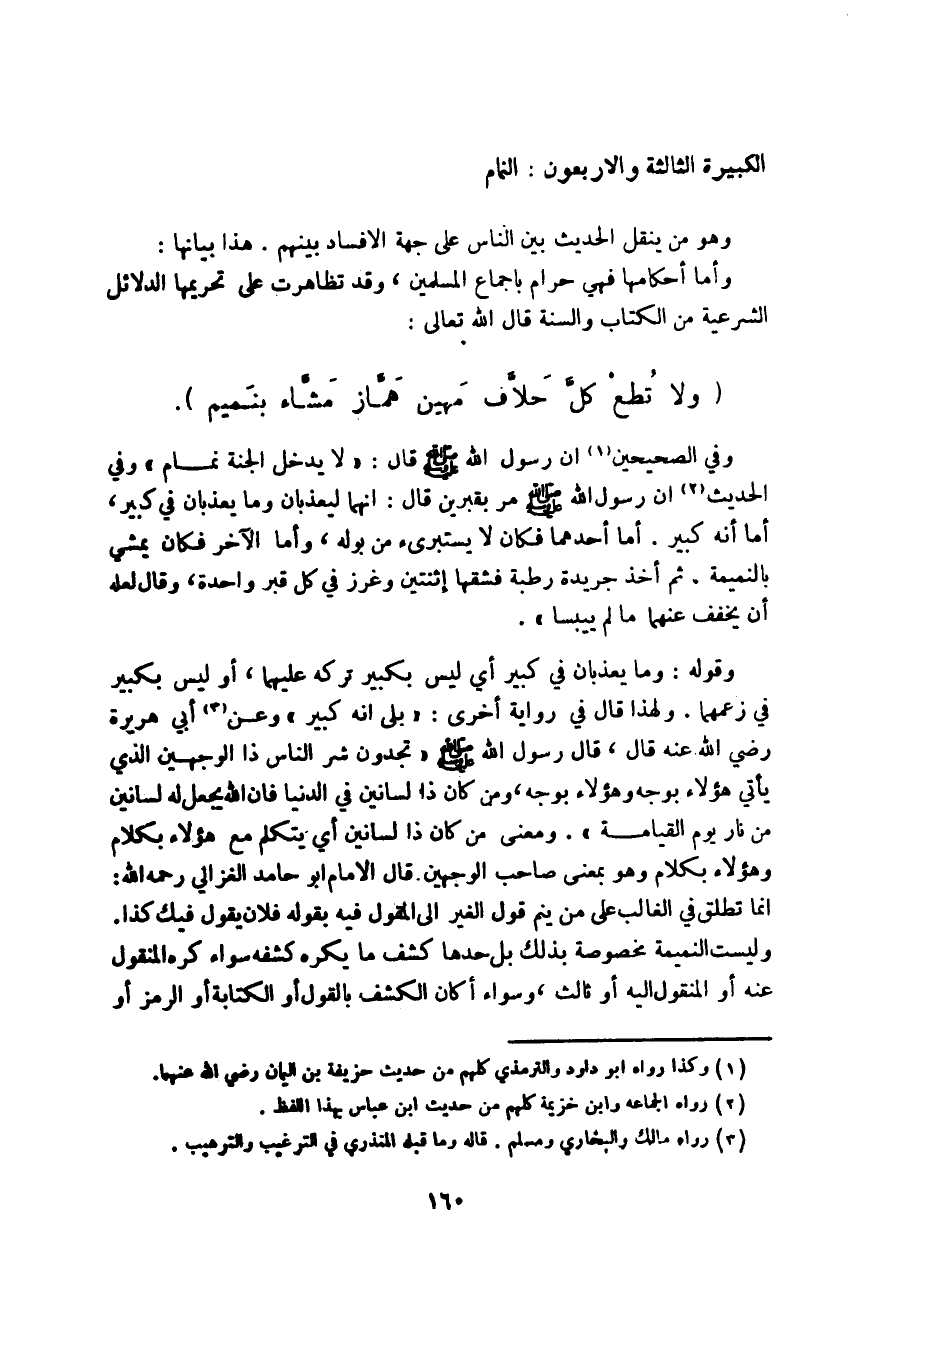 الكبيرة الثالثة والاربعون : النمام
وهو من ينقل الحديث بين الناس على جهة الافساد بينهم . هذا بيانها :
وأما أحكامها فهي حرام باجماع المسلمين ، وقد تظاهرت على تحريمها الدلائل
الشرعية من الكتاب والسنة قال الله تعالى :
( ولا تُطعْ كلَّ حَلاَّف مَهين هَمَّاز مَشَّاء بنَميم ).
وفي الصحيحين(١) ان رسول الله ﷺ قال : « لا يدخل الجنة نمـــام » وفي
الحديث(٢) ان رسول الله ﷺ مر بقبرين قال : انهما ليعذبان وما يعذبان في كبير ،
أما أنه كبير . أما أحدهما فكان لا يستبرىء من بوله ، وأما الآخر فكان يمشي
بالنميمة . ثم أخذ جريدة رطبة فشقها إثنتين وغرز في كل قبر واحدة، وقال لعله
أن يخفف عنهما ما لم ييبسا » .
وقوله : وما يعذبان في كبير أي ليس بكبير تركه عليهما ، أو ليس بكبير
في زعمهما . ولهذا قال في رواية أخرى : « بلى انه كبير » وعـن(٣) أبي هريرة
رضي الله عنه قال ، قال رسول الله ﷺ « تجدون شر الناس ذا الوجهـين الذي
يأتي هؤلاء بوجه وهؤلاء بوجه ، ومن كان ذا لسانين في الدنيا فان الله يجعل له لسانين
من نار يوم القيامـــة » . ومعنى من كان ذا لسانين أي يتكلم مع هؤلاء بكلام
وهؤلاء بكلام وهو بمعنى صاحب الوجهين . قال الامام ابو حامد الغزالي رحمه الله :
انما تطلق في الغالب على من ينم قول الغير الى المقول فيه بقوله فلان يقول فيك كذا .
وليست النميمة مخصوصة بذلك بل حدها كشف ما يكره كشفه سواء كره المنقول
عنه أو المنقول اليه أو ثالث ، وسواء أكان الكشف بالقول أو الكتابة أو الرمز أو
(١) وكذا رواه ابو داود والترمذي كلهم من حديث حزيفة بن اليمان رضي الله عنهما.
(٢) رواه الجماعه وابن خزيمة كلهم من حديث ابن عباس بهذا اللفظ .
(٣) رواه مالك والبخاري ومسلم . قاله وما قبله المنذري في الترغيب والترهيب .
١٦٠